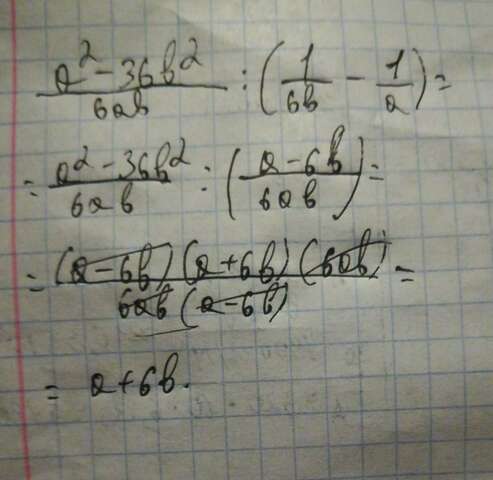 (a² - 36b²)/(6ab) : (1/(6b) - 1/a) =
= (a² - 36b²)/(6ab) : ((a - 6b)/(6ab)) =
= ((a - 6b)(a + 6b)(6ab))/(6ab(a - 6b)) =
= a + 6b.